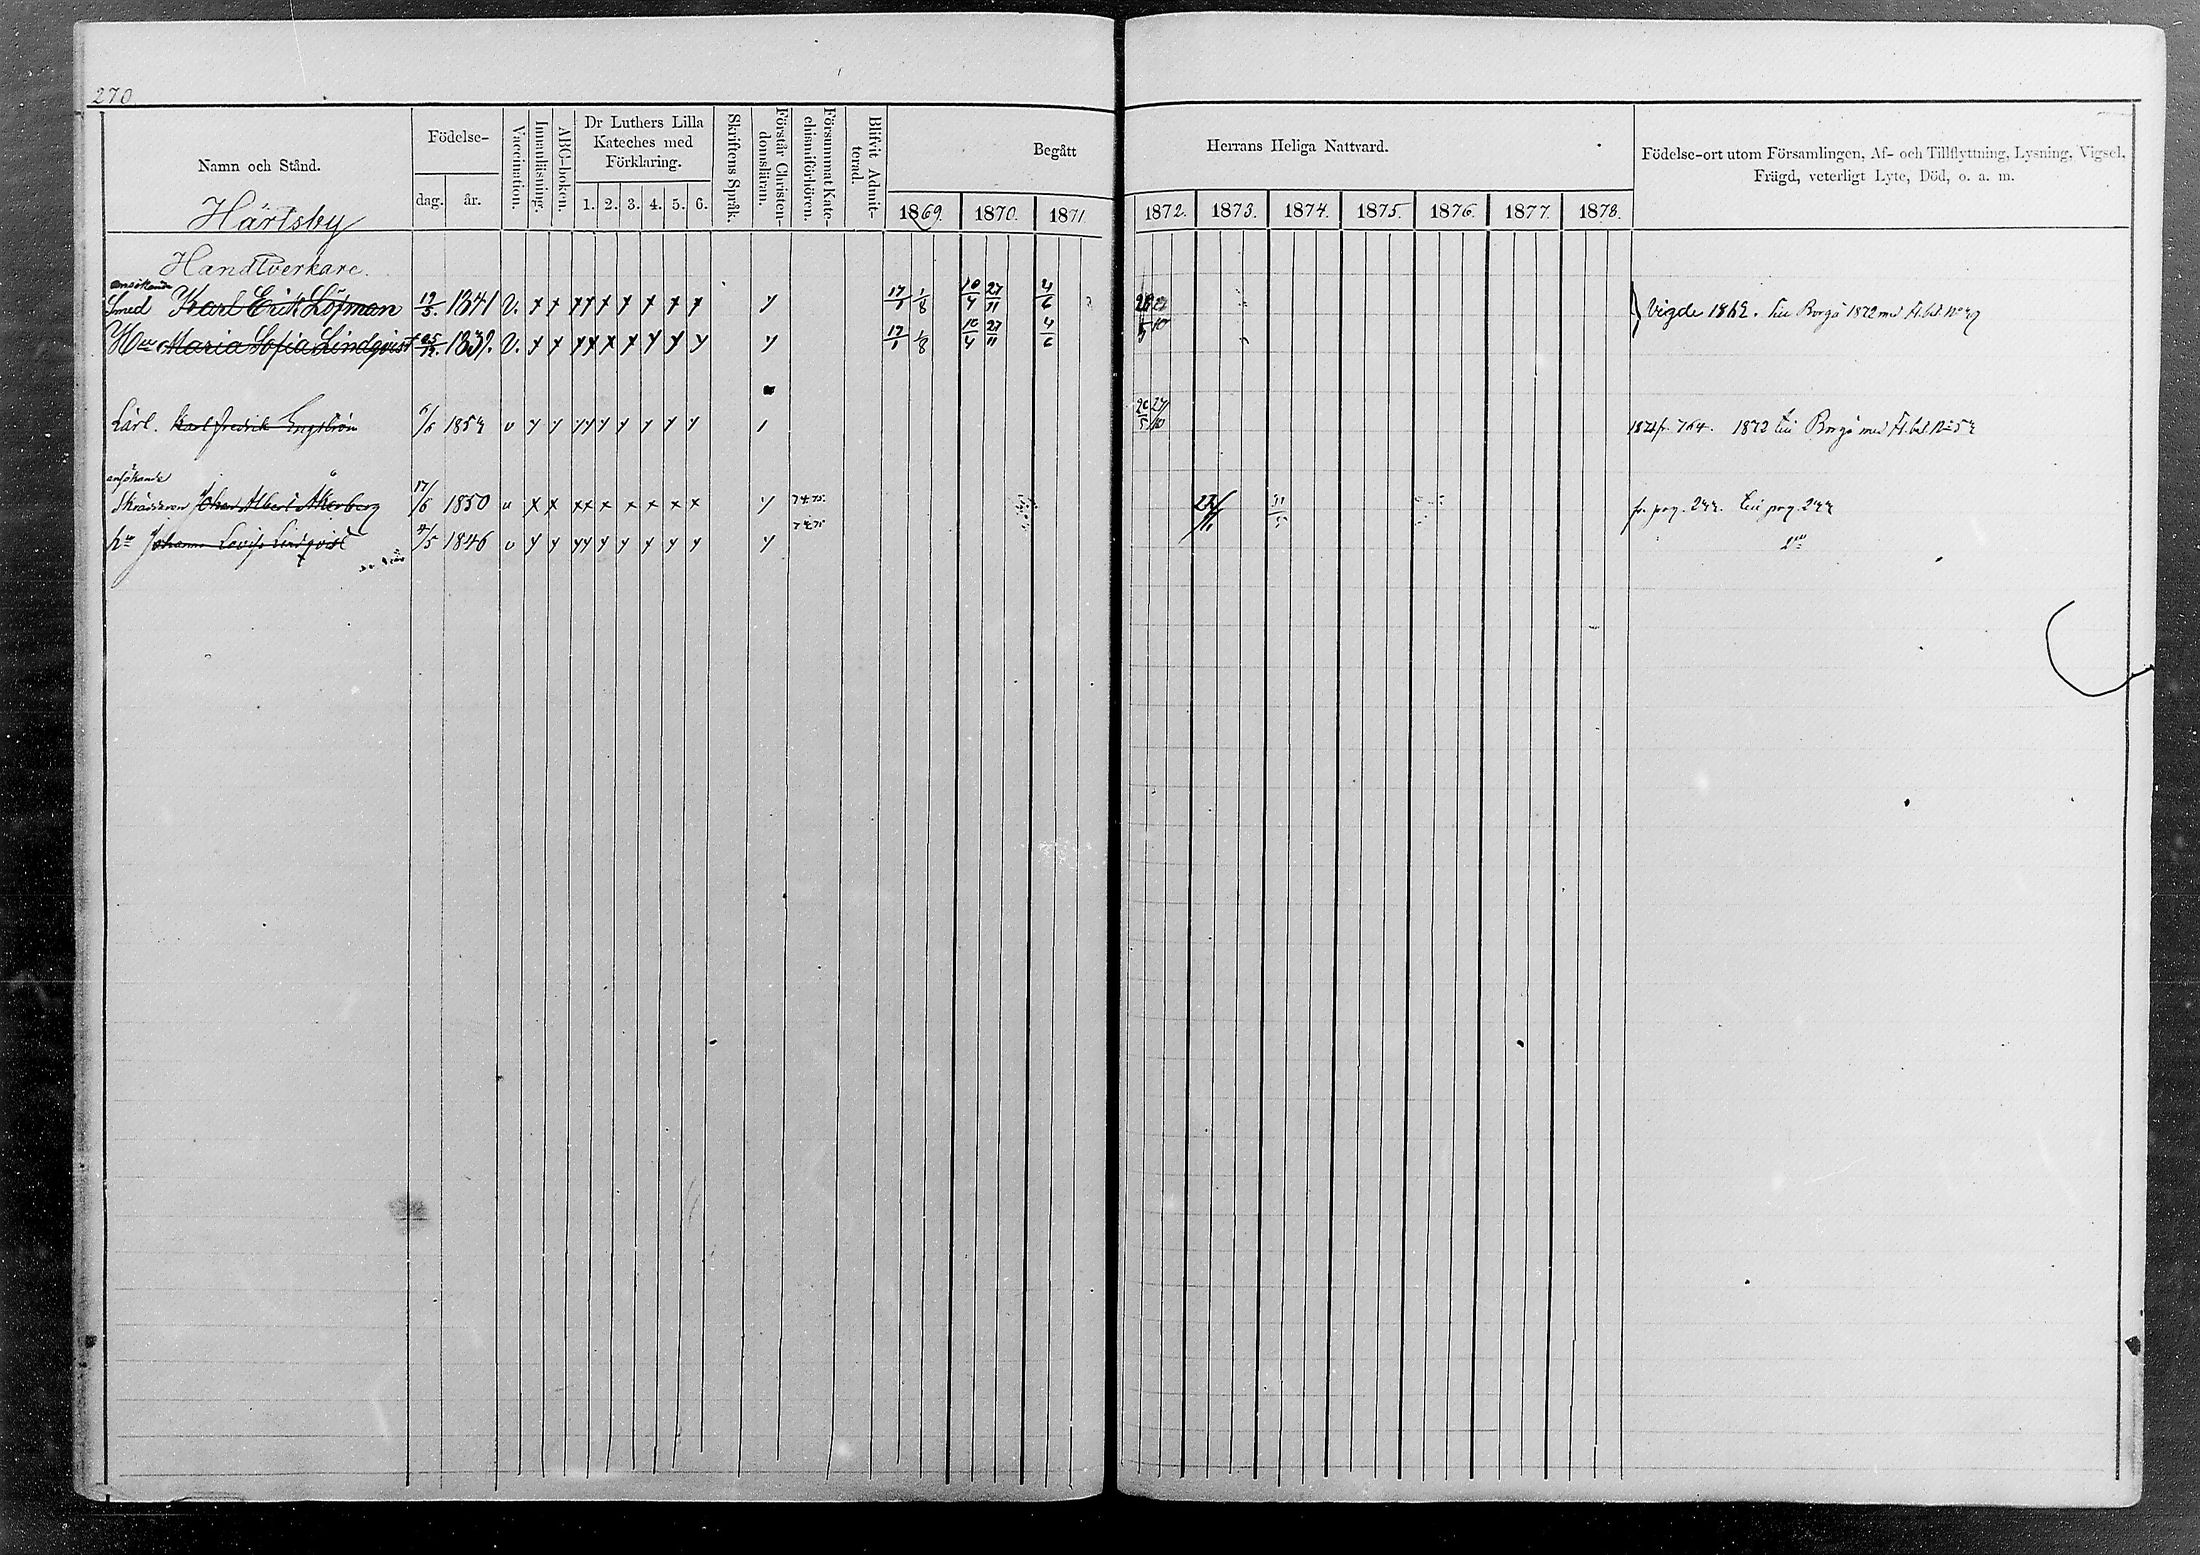 270
Namn och Stånd.
Födelse-
dag. år.
Vaccination.
Innanläsning.
ABC-boken.
Dr Luthers Lilla
Kateches med
Förklaring.
1. 2. 3. 4. 5. 6.
Skriftens Språk.
Förstår Christen-
domsläran.
Försummat Kate-
chismiförhören.
Blifvit Admit-
terad.
Begått
1869. 1870. 1871
Herrans Heliga Nattvard.
1872. 1873. 1874. 1875. 1876. 1877. 1878.
Födelse-ort utom Församlingen, Af- och Tillflyttning, Lysning, Vigsel,
Frägd, veterligt Lyte, Död, o. a. m.
Härtsby
Handtverkare.
ansökande
Smed Karl Erik Löfman 19/5. 1841 V. x x x x x x x x x y 17/1 1/8 10/4 27/11 4/6 Vigde 1862. till Borgå 1872 med Fl. bet. No
Hu Maria Sofia Lindqvist 1839. V. x y x x x x y y y y 17/1 1/8 10/4 27/11 4/6
Lärl. Karl Fredrik Engström 6/6 1854 v y y y y y y y y y 20/5 27/10 1871 fr. 764. 1872 till Borgå med Fl. bet. No
ansökande
Skräddaren Johan Albert Åkerberg 17/6 1850 v x x x x x x x x x y 74. 75. fr. pag. 244. till pag. 244
hu Johanna Lovisa Lindqvist 4/5 1846 v y y y y y y y y y y 74 75